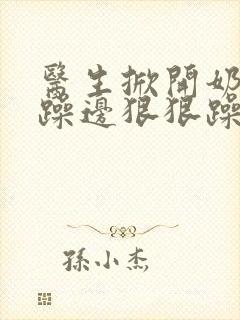 醫生掀開奶
躁邊狠狠躁
孫小杰